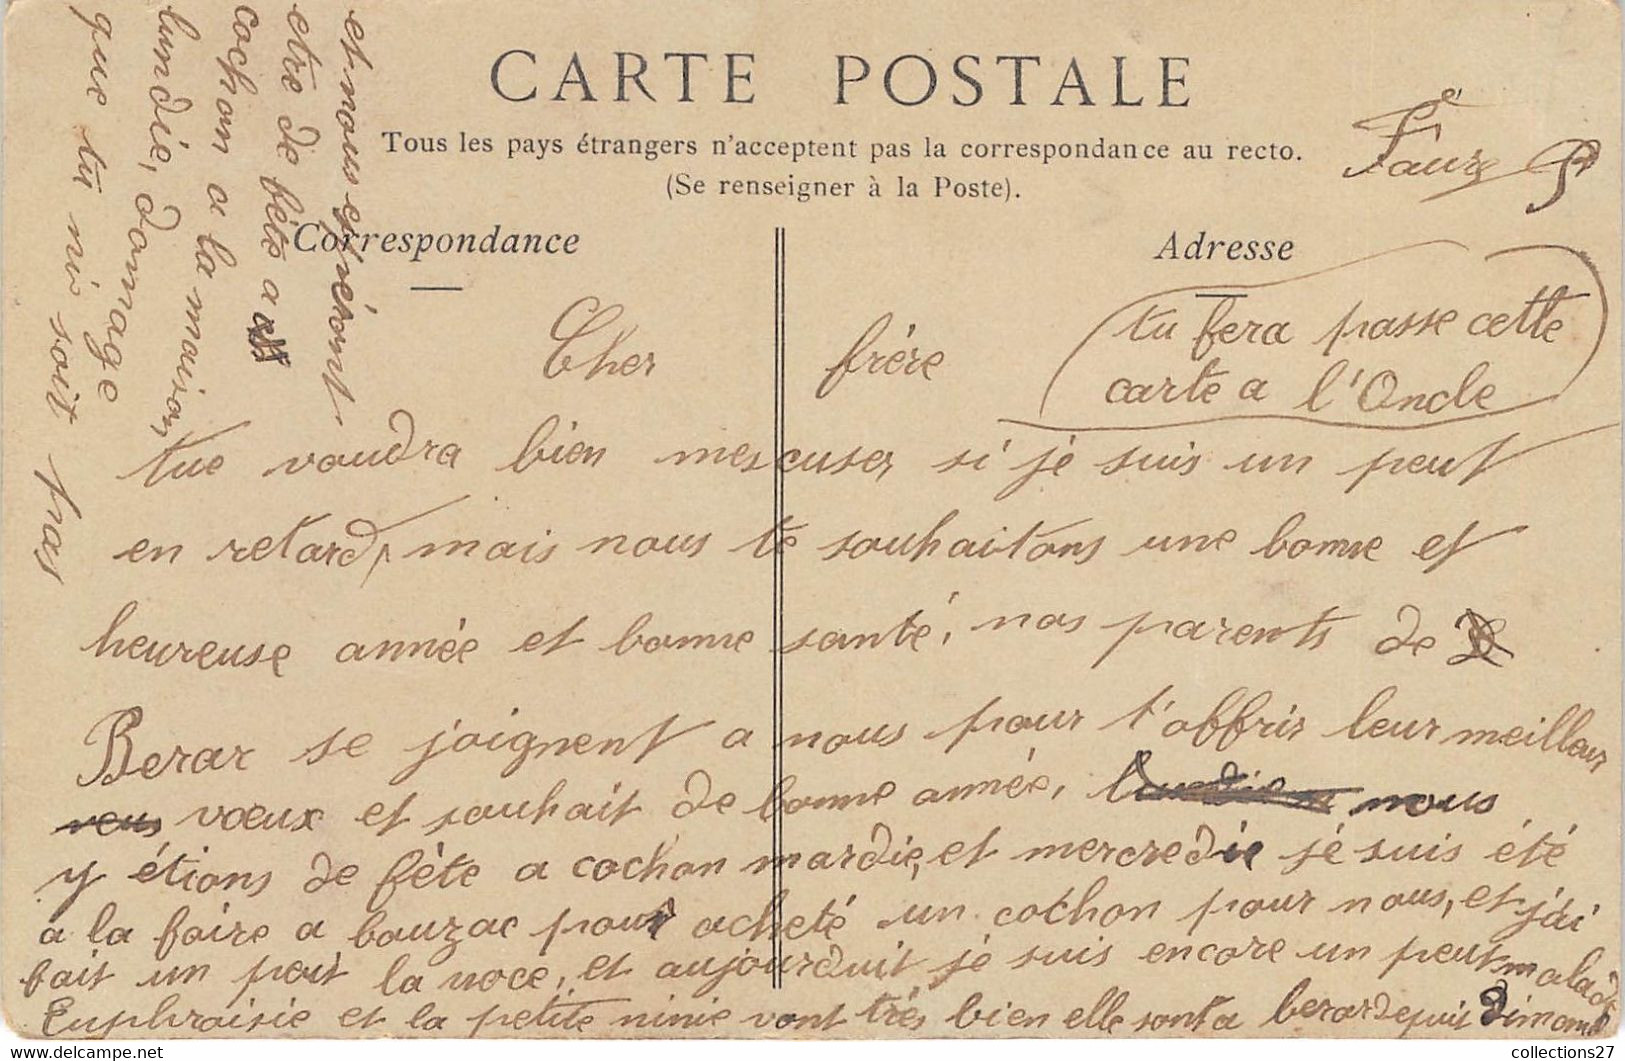 CARTE POSTALE
Tous les pays étrangers n'acceptent pas la correspondance au recto.
(Se renseigner à la Poste).
Correspondance
Adresse
Faure
tu fera passe cette
carte a l'Oncle
Cher frére
tue voudra bien mescuser si je suis un peut
en retard, mais nous te souhaitons une bonne et
heureuse année et bonne santé, nos parents de
Berar se joignent a nous pour t'offrir leur meilleur
vœux et souhait de bonne année, nous
y étions de fète a cochon mardie, et mercredie je suis été
a la foire a bouzac pour acheté un cochon pour nous, et j'ai
fait un peut la noce, et aujourduit je suis encore un peut malade
Euphraisie et la petite ninie vont trés bien elle sont a berar depuit Dimanc
et nous espréront
etre de fète a
cochon a la maison
lundie, domage
que tu ni soit pas
collections27